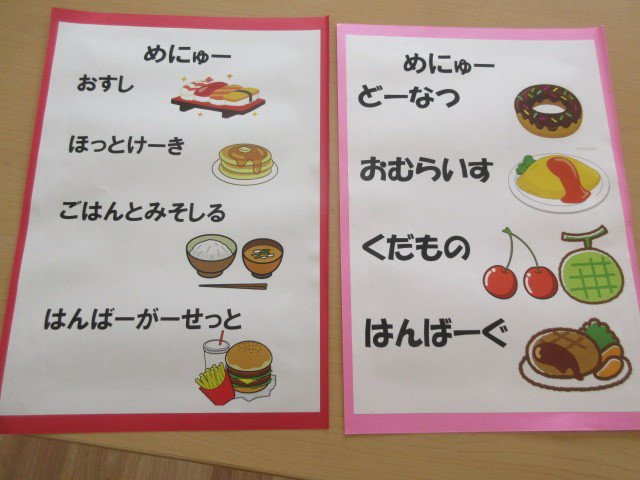 めにゅー
おすし
ほっとけーき
ごはんとみそしる
はんばーがーせっと
めにゅー
どーなつ
おむらいす
くだもの
はんばーぐ